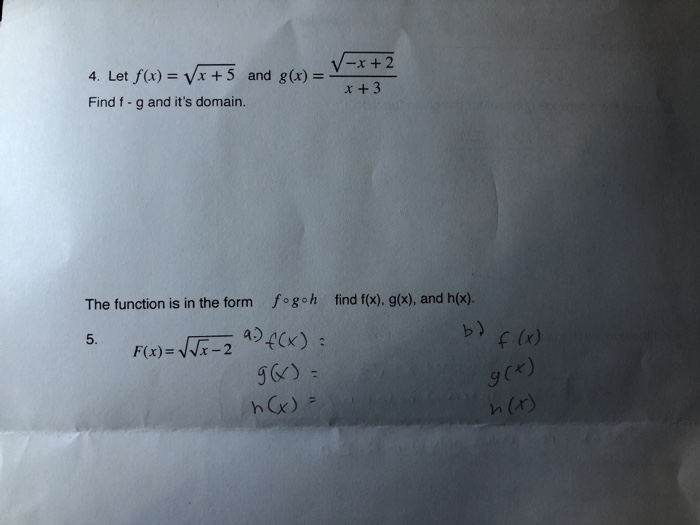 4. Let f(x) = √(x + 5) and g(x) = √(−x + 2) / (x + 3)
Find f - g and it's domain.
The function is in the form f∘g∘h find f(x), g(x), and h(x).
5. F(x)= √(√x − 2) a.) f(x) = b) f(x)
g(x) = g(x)
h(x) = h(x)